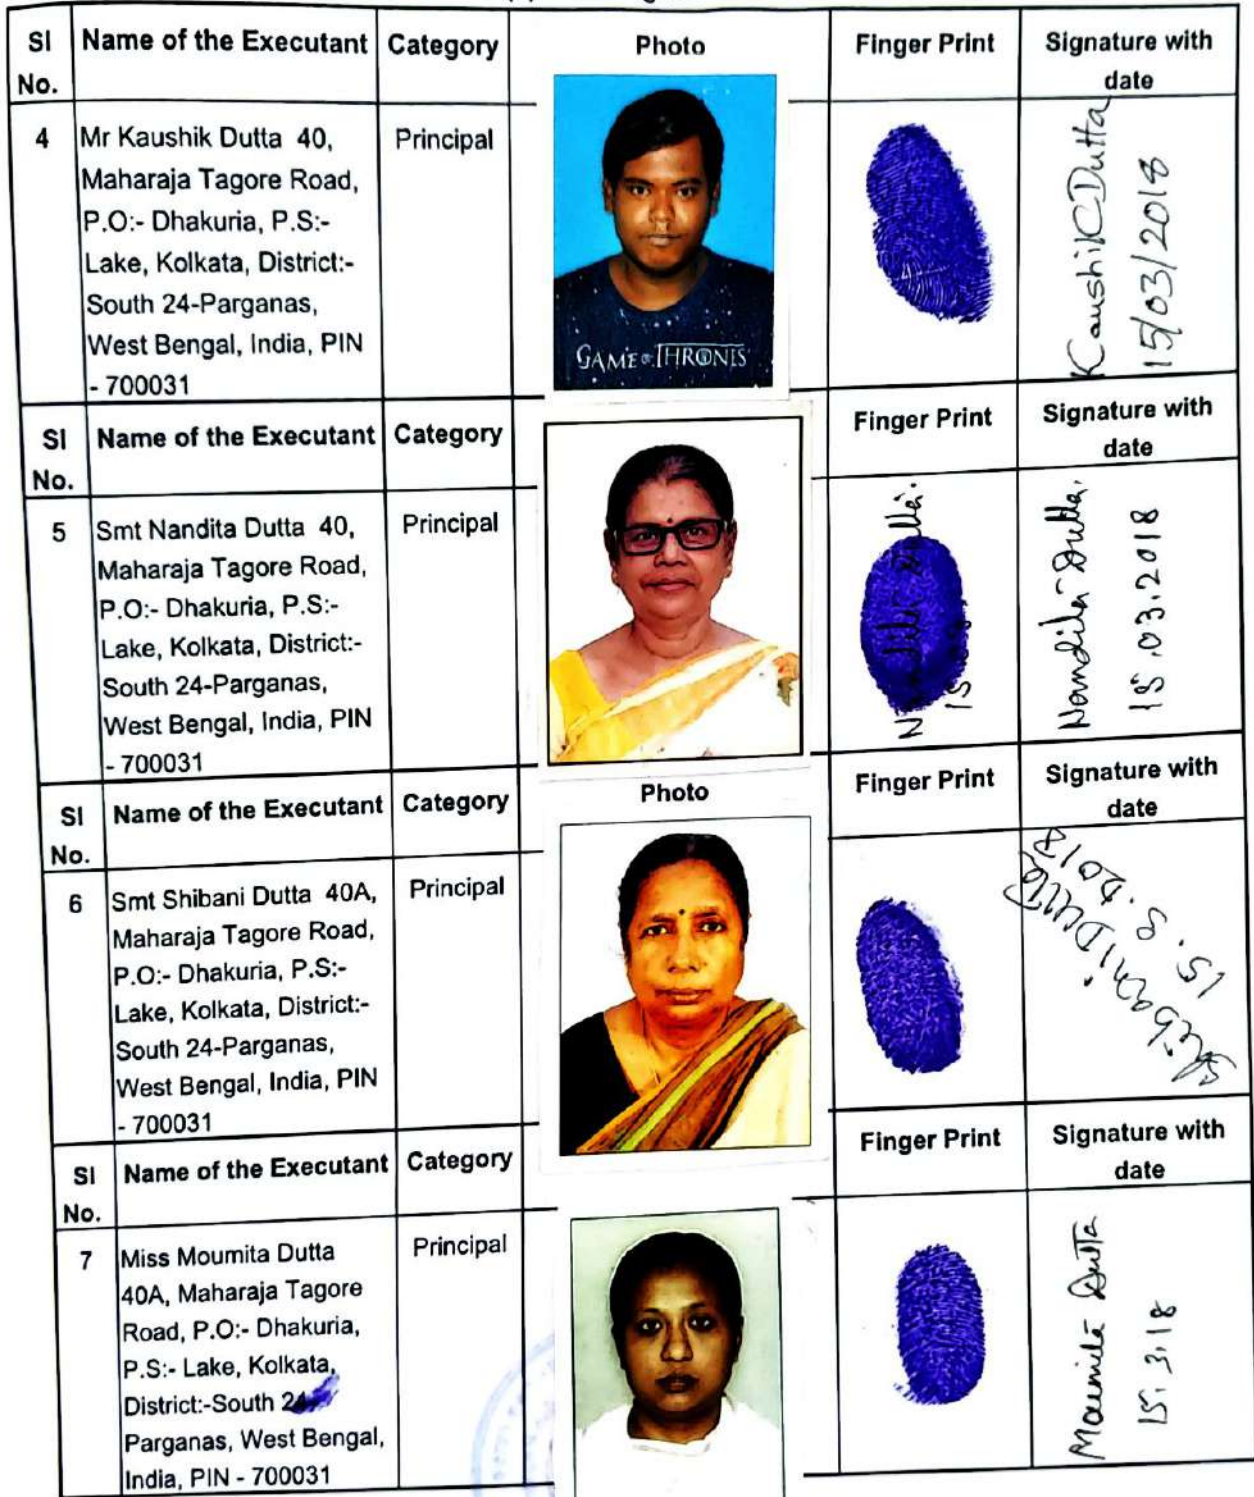 Sl No.
Name of the Executant
Category
Photo
Finger Print
Signature with date
4
Mr Kaushik Dutta 40,
Maharaja Tagore Road,
P.O:- Dhakuria, P.S:-
Lake, Kolkata, District:-
South 24-Parganas,
West Bengal, India, PIN
- 700031
Principal
GAME OF THRONES
Kaushik Dutta
15/03/2018
Sl No.
Name of the Executant
Category
Finger Print
Signature with date
5
Smt Nandita Dutta 40,
Maharaja Tagore Road,
P.O:- Dhakuria, P.S:-
Lake, Kolkata, District:-
South 24-Parganas,
West Bengal, India, PIN
- 700031
Principal
Nandita Dutta.
15
Nandita Dutta.
15.03.2018
Sl No.
Name of the Executant
Category
Photo
Finger Print
Signature with date
6
Smt Shibani Dutta 40A,
Maharaja Tagore Road,
P.O:- Dhakuria, P.S:-
Lake, Kolkata, District:-
South 24-Parganas,
West Bengal, India, PIN
- 700031
Principal
Shibani Dutta
15.3.2018
Sl No.
Name of the Executant
Category
Finger Print
Signature with date
7
Miss Moumita Dutta
40A, Maharaja Tagore
Road, P.O:- Dhakuria,
P.S:- Lake, Kolkata,
District:-South 24-
Parganas, West Bengal,
India, PIN - 700031
Principal
Moumita Dutta
15.3.18